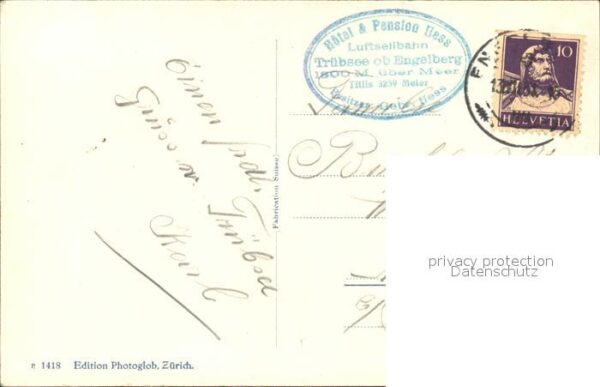 Einen frdl.
Gruss v.
Trübsee
Karl
Fabrication Suisse
R 1418 Edition Photoglob, Zürich.
Hôtel & Pension Hess
Luftseilbahn
Trübsee ob Engelberg
1800 M. über Meer
Titlis 3239 Meter
Besitzer: Gebr. Hess
10
HELVETIA
privacy protection
Datenschutz